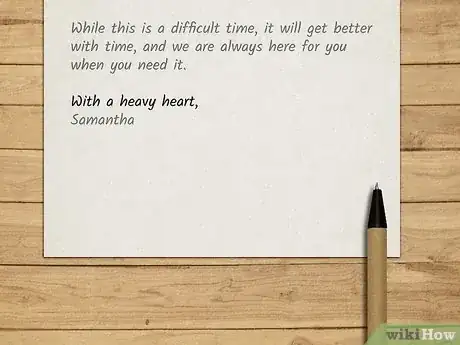 While this is a difficult time, it will get better
with time, and we are always here for you
when you need it.
With a heavy heart,
Samantha
wikiHow